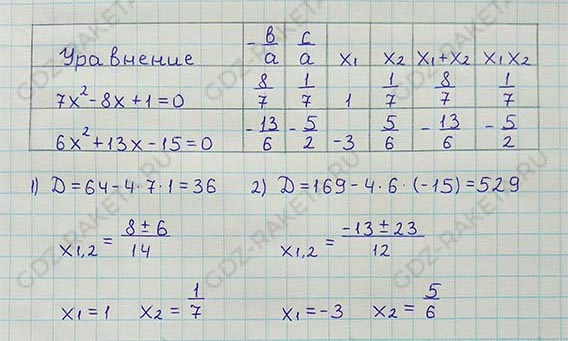 Уравнение | -b/a | c/a | x₁ | x₂ | x₁+x₂ | x₁x₂
7x²-8x+1=0 | 8/7 | 1/7 | 1 | 1/7 | 8/7 | 1/7
6x²+13x-15=0 | -13/6 | -5/2 | -3 | 5/6 | -13/6 | -5/2
1) D=64-4·7·1=36 2) D=169-4·6·(-15)=529
x₁,₂ = (8±6)/14 x₁,₂ = (-13±23)/12
x₁=1 x₂=1/7 x₁=-3 x₂=5/6
GDZ-RAKETA.RU